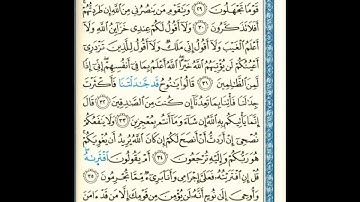 قَوْمًا تَجْهَلُونَ ٢٩ وَيَٰقَوْمِ مَن يَنصُرُنِى مِنَ ٱللَّهِ إِن طَرَدتُّهُمْ
أَفَلَا تَذَكَّرُونَ ٣٠ وَلَآ أَقُولُ لَكُمْ عِندِى خَزَآئِنُ ٱللَّهِ وَلَآ
أَعْلَمُ ٱلْغَيْبَ وَلَآ أَقُولُ إِنِّى مَلَكٌ وَلَآ أَقُولُ لِلَّذِينَ تَزْدَرِىٓ
أَعْيُنُكُمْ لَن يُؤْتِيَهُمُ ٱللَّهُ خَيْرًا ٱللَّهُ أَعْلَمُ بِمَا فِىٓ أَنفُسِهِمْ إِنِّىٓ إِذًا
لَّمِنَ ٱلظَّٰلِمِينَ ٣١ قَالُوا۟ يَٰنُوحُ قَدْ جَٰدَلْتَنَا فَأَكْثَرْتَ
جِدَٰلَنَا فَأْتِنَا بِمَا تَعِدُنَآ إِن كُنتَ مِنَ ٱلصَّٰدِقِينَ ٣٢ قَالَ
إِنَّمَا يَأْتِيكُم بِهِ ٱللَّهُ إِن شَآءَ وَمَآ أَنتُم بِمُعْجِزِينَ ٣٣ وَلَا يَنفَعُكُمْ
نُصْحِىٓ إِنْ أَرَدتُّ أَنْ أَنصَحَ لَكُمْ إِن كَانَ ٱللَّهُ يُرِيدُ أَن يُغْوِيَكُمْ
هُوَ رَبُّكُمْ وَإِلَيْهِ تُرْجَعُونَ ٣٤ أَمْ يَقُولُونَ ٱفْتَرَىٰهُ
قُلْ إِنِ ٱفْتَرَيْتُهُۥ فَعَلَىَّ إِجْرَامِى وَأَنَا۠ بَرِىٓءٌ مِّمَّا تُجْرِمُونَ ٣٥
وَأُوحِىَ إِلَىٰ نُوحٍ أَنَّهُۥ لَن يُؤْمِنَ مِن قَوْمِكَ إِلَّا مَن قَدْ ءَامَنَ